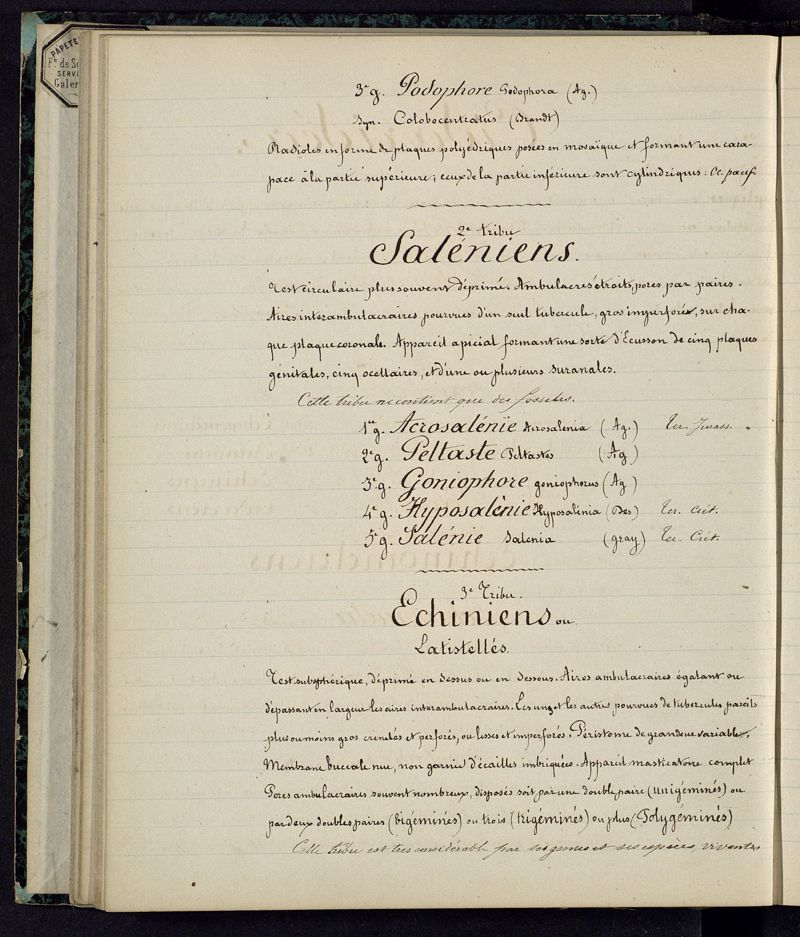 PAPETE
Fs de S
SERVI
Galer
3e g. Podophore Podophora (Ag.)
Syn. Colobocentratus (Brandt)
Radioles en forme de plaques polyédriques posées en mosaïque et formant une cara-
pace à la partie supérieure; ceux de la partie inférieure sont cylindriques: Oc. pacif.
2e tribu
Saléniens.
Test circulaire plus souvent déprimé. Ambulacres étroits, pores par paires.
Aires interambulacraires pourvues d'un seul tubercule, gros imperforés, sur cha-
que plaque coronale. Appareil apicial formant une sorte d'Ecusson de cinq plaques
génitales, cinq ocellaires, et d'une ou plusieurs suranales.
Cette tribu ne contient que des fossiles.
1er g. Acrosalénie Acrosalenia (Ag.) Ter. Jurass.
2e g. Peltaste Peltastes (Ag)
3e g. Goniophore goniophorus (Ag.)
4e g. Hyposalénie Hyposalénia (Des) Ter. Crét.
5e g. Salénie Salenia (gray) Ter. Crét.
3e Tribu.
Echiniens ou
Latistellés.
Test subsphérique, déprimé en dessus ou en dessous. Aires ambulacraires égalant ou
dépassant en largeur les aires interambulacraires. Les unes et les autres pourvues de tubercules pareils
plus ou moins gros crenelés et perforés, ou lisses et imperforés. Péristome de grandeur variable,
Membrane buccale nue, non garnie d'écailles imbriquées. Appareil masticatoire complet
Pores ambulacraires souvent nombreux, disposés soit par une double paire (unigéminés) ou
par deux doubles paires (bigéminés) ou trois (trigéminés) ou plus (Polygéminés)
Cette tribu est très considérable par ses genres et ses espèces, vivantes